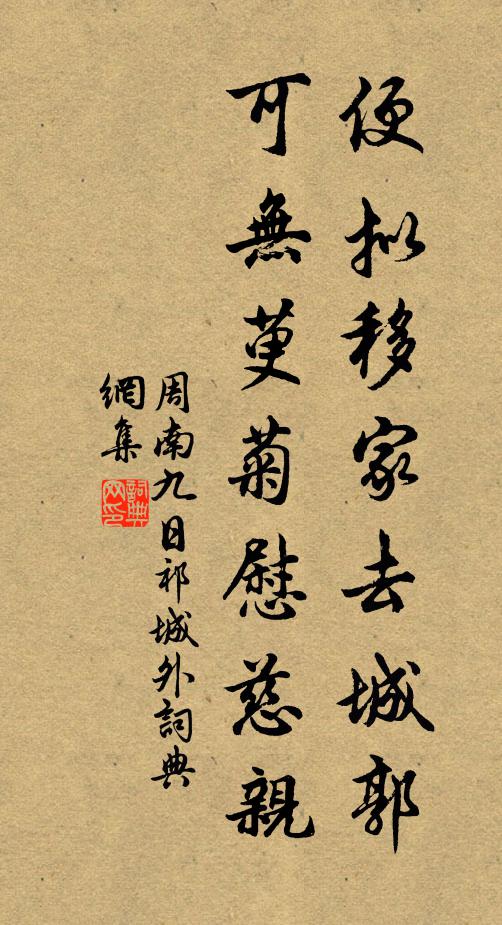 便拟移家去城郭
可無萸菊慰慈親
周南九日祁城外詞典
網集
詞典
网印